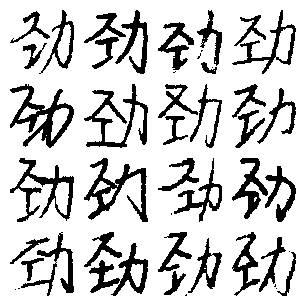 劲劲劲劲
劲劲劲劲
劲劲劲劲
劲劲劲劲